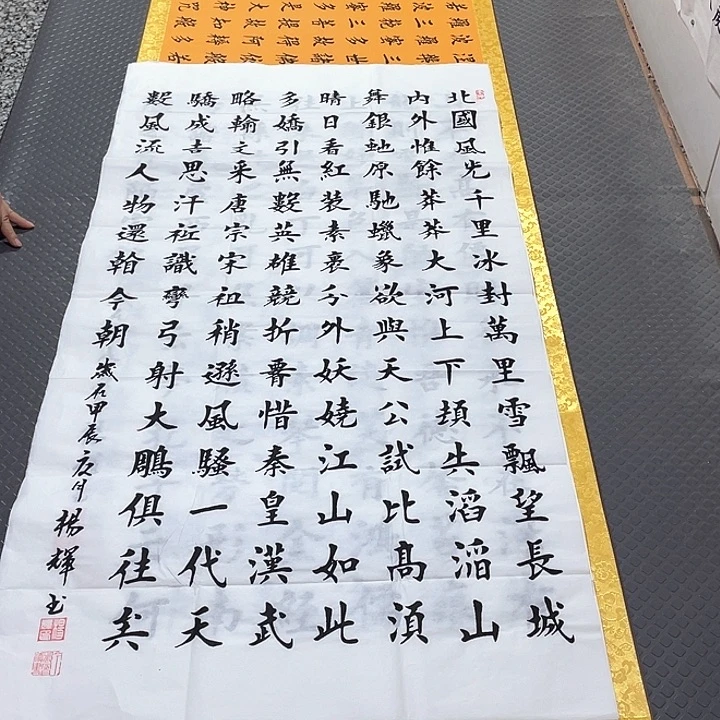 北國風光千里冰封萬里雪飄望長城
内外惟餘莽莽大河上下頓失滔滔山
舞銀虵原馳蠟象欲與天公試比髙須
晴日看紅裝素裹分外妖嬈江山如此
多嬌引無數英雄競折腰惜秦皇漢武
略輸文采唐宗宋祖稍遜風騷一代天
驕成吉思汗祗識彎弓射大鵰俱往矣
數風流人物還看今朝
歲在甲辰 月 楊輝书